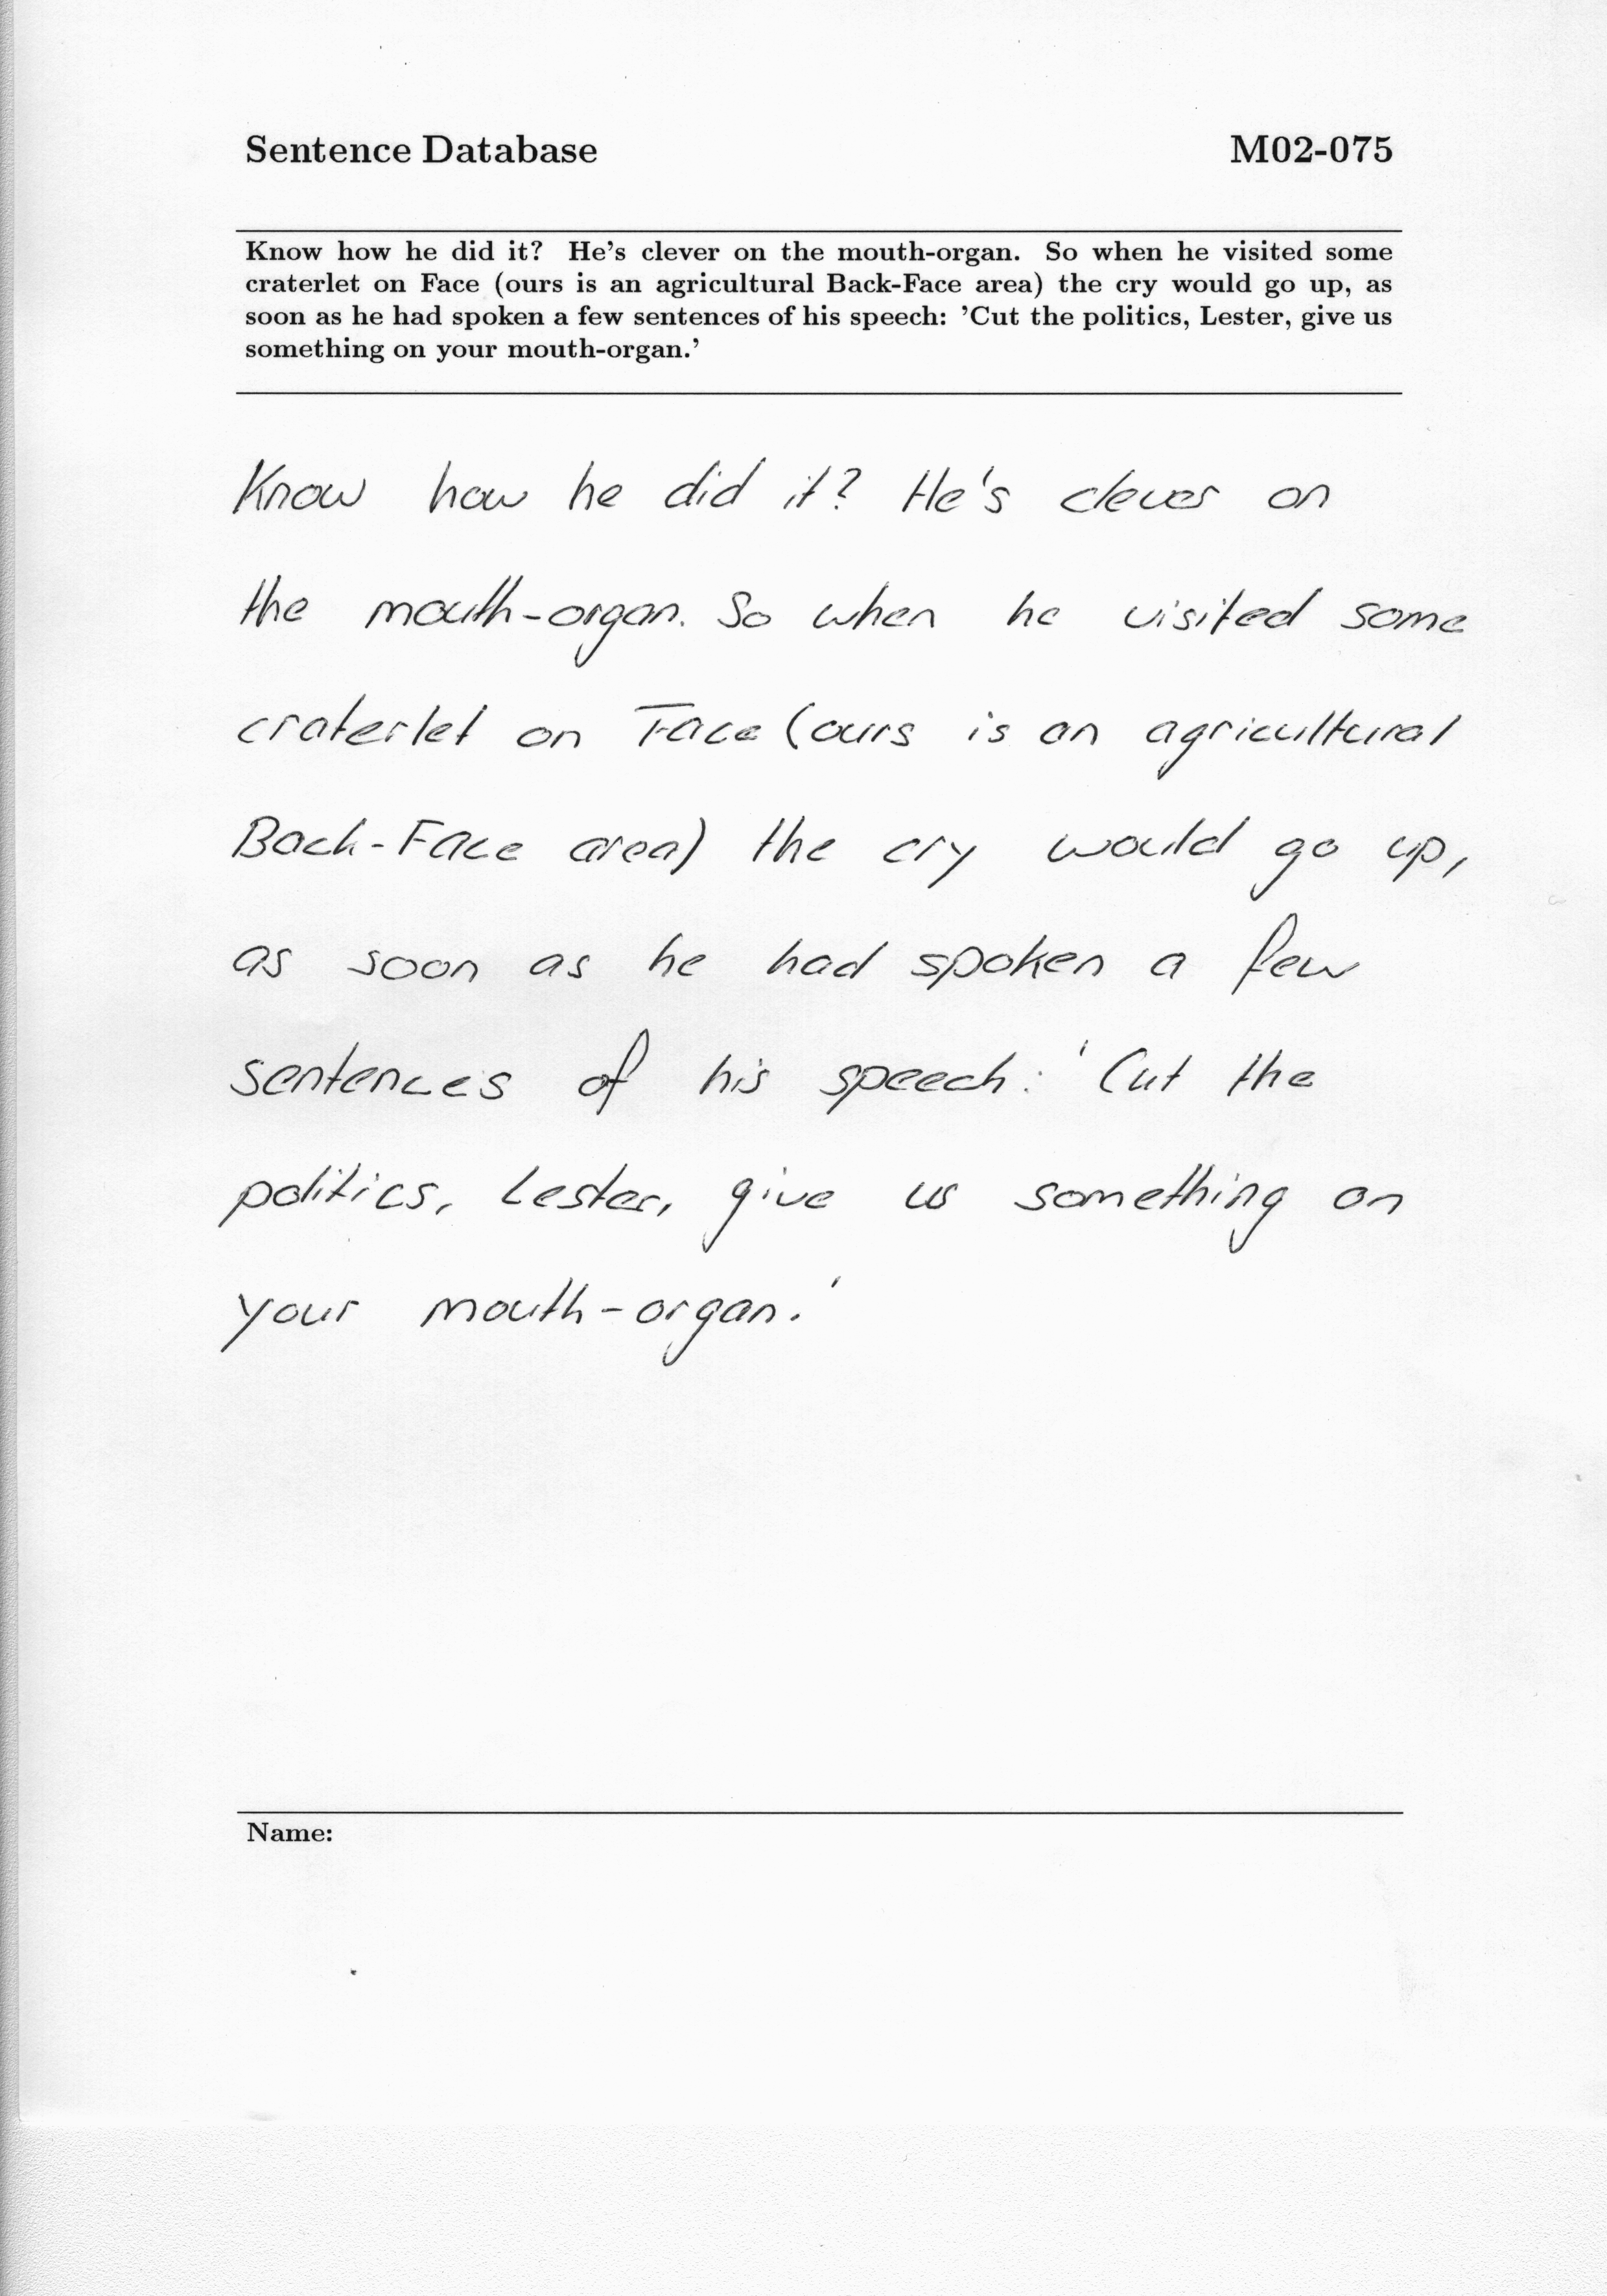 Sentence Database M02-075
Know how he did it? He's clever on the mouth-organ. So when he visited some
craterlet on Face (ours is an agricultural Back-Face area) the cry would go up, as
soon as he had spoken a few sentences of his speech: 'Cut the politics, Lester, give us
something on your mouth-organ.'
Know how he did it? He's clever on
the mouth-organ. So when he visited some
craterlet on Face (ours is an agricultural
Back-Face area) the cry would go up,
as soon as he had spoken a few
sentences of his speech: 'Cut the
politics, Lester, give us something on
your mouth-organ.'
Name: